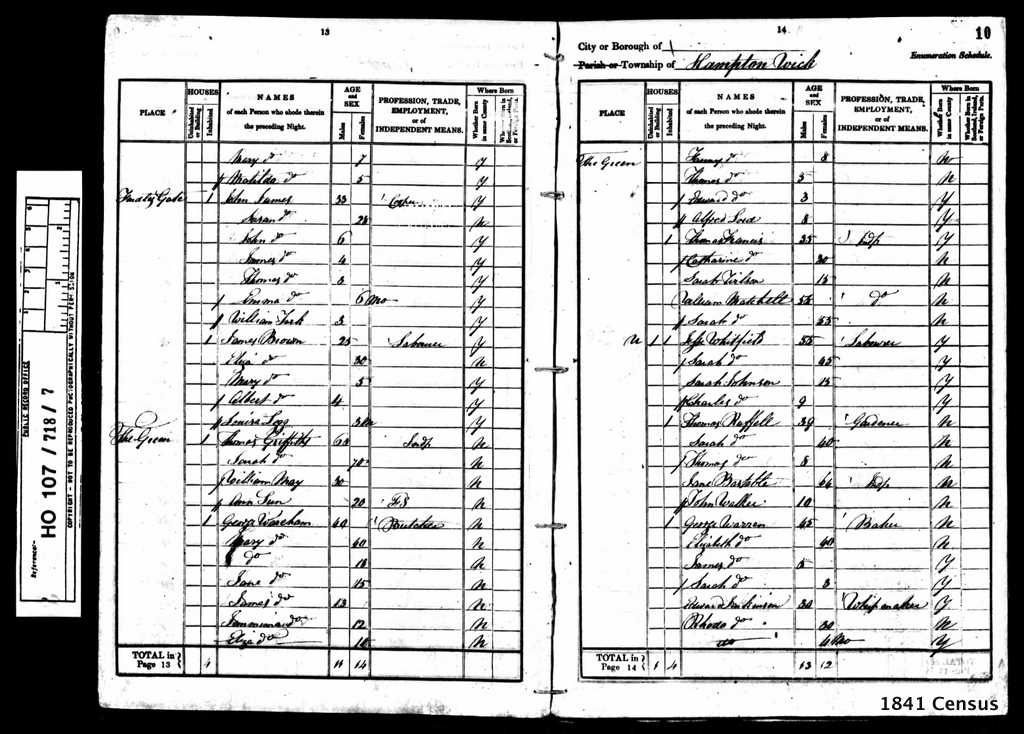 13
HOUSES
PLACE
Uninhabited or Building
Inhabited
NAMES
of each Person who abode therein
the preceding Night.
AGE and SEX
Males
Females
PROFESSION, TRADE,
EMPLOYMENT,
or of
INDEPENDENT MEANS.
Where Born
Whether Born in same County
Mary do 7 Y
Matilda do 5 Y
1 John James 33 Y
Sarah do 28 N
John do 6 Y
James do 4 Y
Thomas do 3 Y
Emma do 6 Mo Y
William 3 Y
1 James Brown 25 Labourer Y
Eliza do 30 N
Mary do 5 Y
Albert do 4 Y
Louisa Y
The Green 1 Thomas Griffiths Indp N
Sarah do 70 N
William May 30 N
Ann 20 FS N
1 George Wareham 40 N
Mary do 40 N
do N
Jane do 15 N
James do N
Jemimia do 12 N
Eliza do 10 N
TOTAL in
Page 13
4
11 14
14
10
City or Borough of
Parish or Township of Hampton Wick
Enumeration Schedule.
HOUSES
PLACE
Uninhabited or Building
Inhabited
NAMES
of each Person who abode therein
the preceding Night.
AGE and SEX
Males
Females
PROFESSION, TRADE,
EMPLOYMENT,
or of
INDEPENDENT MEANS.
Where Born
Whether Born in same County
Whether Born in Scotland, Ireland, or Foreign Parts.
The Green Fanny do 8 N
Thomas do 5 N
Edward do 3 Y
Alfred Lord 8 Y
1 Thomas Francis 35 Indp Y
Catharine do 30 N
Sarah Wilson 15 N
William Matchell 55 do N
Sarah do 55 N
U 1 1 Whitfield 55 Labourer Y
Sarah do 45 Y
Sarah Johnson 15 Y
Charles do 9 Y
1 Thomas Raffell 39 Gardener N
Sarah do 40 N
Thomas do 8 N
Jane 64 Indp N
John Walker 10 N
1 George Warren 45 Baker N
Elizabeth do 40 N
James do 5 Y
Sarah do 3 Y
Edward Jenkinson 30 Whipmaker Y
Rhoda do 30 N
do 6 Mo Y
TOTAL in
Page 14
1 4
13 12
PUBLIC RECORD OFFICE
Reference:-
HO 107 / 718 / 7
COPYRIGHT - NOT TO BE REPRODUCED PHOTOGRAPHICALLY WITHOUT PERMISSION
1841 Census